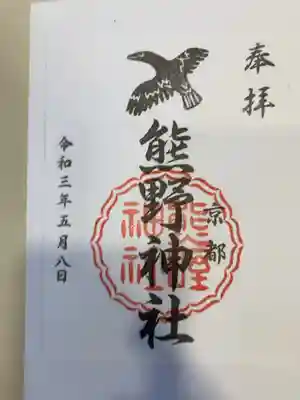 奉拝
京都
熊野神社
令和三年五月八日